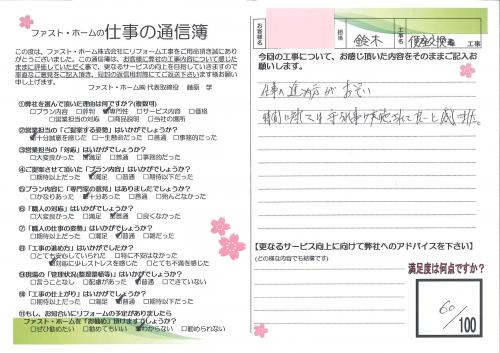 ファスト・ホームの仕事の通信簿
この度は、ファスト・ホーム株式会社にリフォーム工事をご用命頂き誠にあり
がとうございました。この通信簿は、お客様に弊社の工事内容について感じた
ままに評価していただく事で、更なるサービスの向上を目指していきますので
率直なご意見をご記入頂き、同封の返信用封筒にてご返送下さいます様お願い
申し上げます。
ファスト・ホーム㈱ 代表取締役 藤原 学
①弊社を選んで頂いた理由は何ですか?(複数可)
□プラン内容 □評判 □専門性 □サービス内容 □価格
□営業担当の対応 □商品説明 □当社の場所
②営業担当の「ご提案する姿勢」はいかがでしょうか?
□十分誠意を感じた □一生懸命だった □普通 □事務的だった
③営業担当の「対応」はいかがでしょうか?
□大変良かった □満足 □普通 □事務的だった
④ご提案させて頂いた「プラン内容」はいかがでしたか?
□期待以上だった □満足 □普通 □期待以下だった
⑤プラン内容に「専門家の意見」はありましたでしょうか?
□かなりあった □十分あった □普通 □殆んどなかった
⑥「職人の対応」はいかがでしょうか?
□大変良かった □満足 □普通 □良くなかった
⑦「職人の仕事の姿勢」はいかがでしょうか?
□期待以上だった □満足 □普通 □雑だった
⑧「工事の進め方」はいかがでしたか?
□とても安心していられた □特に不安はなかった
□対応に少しストレスを感じた □とても不満を感じた
⑨現場の「管理状況(整理整頓等)」はいかがでしょうか?
□言うことなし □配慮があった □普通 □できていない
⑩「工事の仕上がり」はいかがでしょうか?
□期待以上だった □満足 □普通 □期待以下だった
⑪もし、お知合いにリフォームの予定がありましたら
ファスト・ホームを「お勧め」頂けますでしょうか?
□ぜひ勧めたい □勧めてもいい □わからない □勧められない
お客様名
担当 鈴木
工事名 便座交換 工事
今回の工事について、お感じ頂いた内容をそのままご記入お
願いします。
【更なるサービス向上に向けて弊社へのアドバイスを下さい】
(どの様な内容でも結構です)
満足度は何点ですか?
60/100